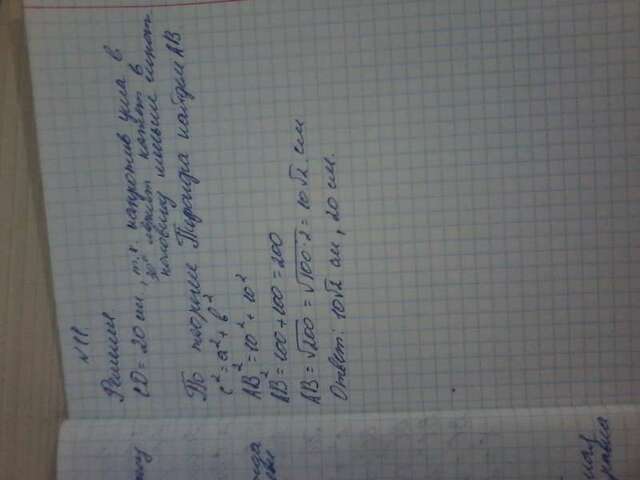 № 11
Решение.
CD = 20 см, т.к. напротив угла в
30° лежит катет в
половину меньше гипот.
По теореме Пифагора найдем AB
c² = a² + b²
AB² = 10² + 10²
AB² = 100 + 100 = 200
AB = √200 = √100·2 = 10√2 см
Ответ: 10√2 см, 20 см.
равна